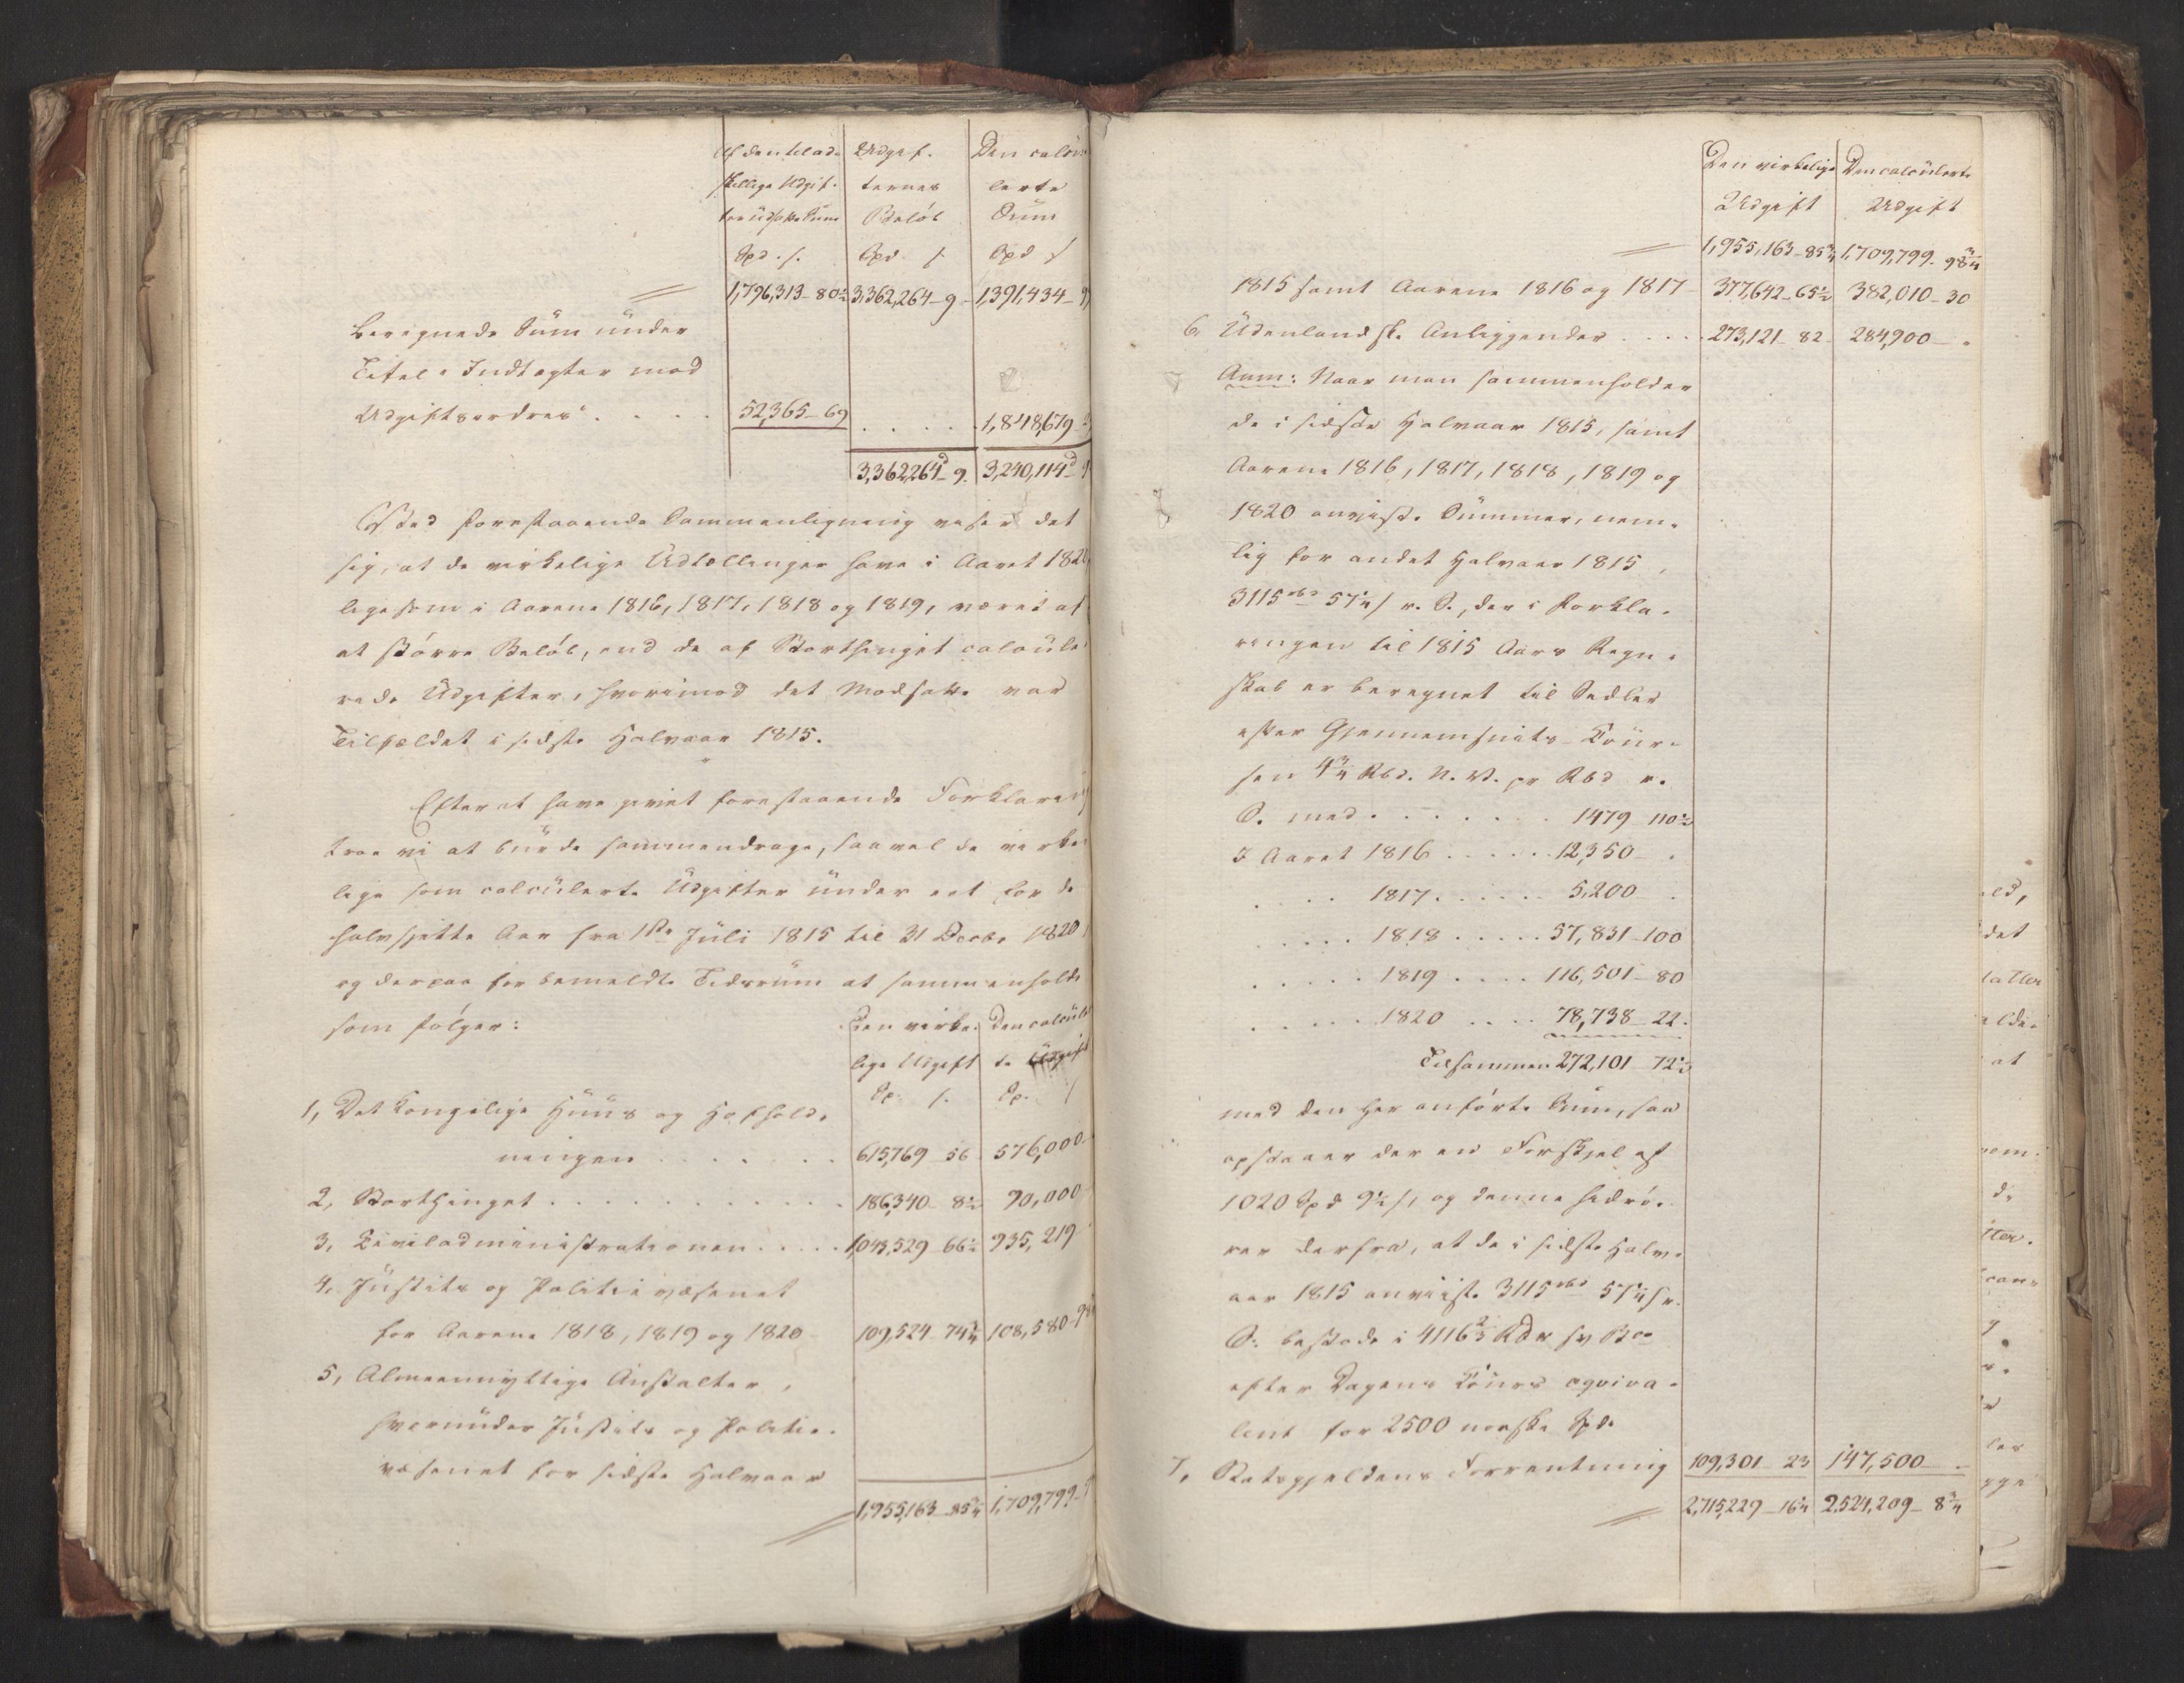 Af den tilad= Udgif= Den calcu=
skillige Udgif= ternes lerte
ter udsatte Sum Beløb Sum
Spd. s. Spd s. Spd s
1,796,313-80½ 3,362,264-9- 1,391,434-9
beregnede Sum under
Titel "Indtægter mod
Udgiftsordres" . . . . 52,365-69 . . . . . 1,848,679
3,362,264-9. 3,240,114
Ved forestaaende Sammenligning viser det
sig, at de virkelige Udtællinger have i Aaret 1820
ligesom i Aarene 1816, 1817, 1818 og 1819, været af
et større Beløb, end de af Storthinget calcule=
rede Udgifter, hvorimod det Modsatte var
Tilfældet i sidste Halvaar 1815.
Efterat have givet forestaaende Forklaring
troe vi at burde sammendrage, saavel de virke=
lige som calculerte Udgifter under eet for de
halvsjette Aar fra 1ste Juli 1815 til 31 Decbr 1820
og derpaa for bemeldte Tidsrum at sammenholde
som følger: Den virke= Den calculer
lige Udgift te Udgift
Sp. s. Sp. s
1, Det Kongelige Huus og Hofhold=
ningen . . . . . . . 615,769-56 576,000-
2, Storthinget . . . . . . . . . . . 186,340-8½ 90,000
3, Civiladministrationen . . . . . 1,043,529-66½ 935,219
4, Justits og Politievæsenet
for Aarene 1818, 1819 og 1820 109,524-74¾ 108,580-98
5, Almeennyttige Anstalter,
hvorunder Justits og Politie=
væsenet for sidste Halvaar
1,955,163-85¾ 1,709,799-9
Den virkelige Den calculerte
Udgift Udgift
1,955,163-85¾ 1,709,799-98¾
1815 samt Aarene 1816 og 1817 377,642-65½ 382,010-30
6, Udenlandske Anliggender . . . . 273,121-82- 284,900-.
Anm: Naar man sammenholder
de i sidste Halvaar 1815, samt
Aarene 1816, 1817, 1818, 1819 og
1820 anviste Summer, nem=
lig for andet Halvaar 1815,
3115 rbd 57¼ s r. S., der i Forkla=
ringen til 1815 Aars Regn=
skab er beregnet til Sedler
efter Gjennemsnits-Cour=
sen 4¾ Rbd. N. V. pr Rbd r.
S. med . . . . . . . 1479-110½
I Aaret 1816 . . . . . . 12,350-.
. . . . 1817 . . . . . . 5,200-.
. . . . . 1818 . . . . . 57,831-100
. . . . . 1819 . . . . 116,501-80
. . . . . 1820 . . . . 78,738-22.
Tilsammen 272,101-72½
med den her anførte Sum, saa
opstaaer der en Forskjel af
1020 Spd 9½ s, og denne hidrø=
rer derfra, at de i sidste Halv=
aar 1815 anviiste 3115 rbd 57¼ s r.
S. bestode i 4116⅔ Rdr Bco
efter Dagens Cours eqviva=
lent for 2500 norske Spd.
7, Statsgjeldens Forrentning 109,301-23 147,500-.
2,715,229-16¼ 2,524,209-8¾